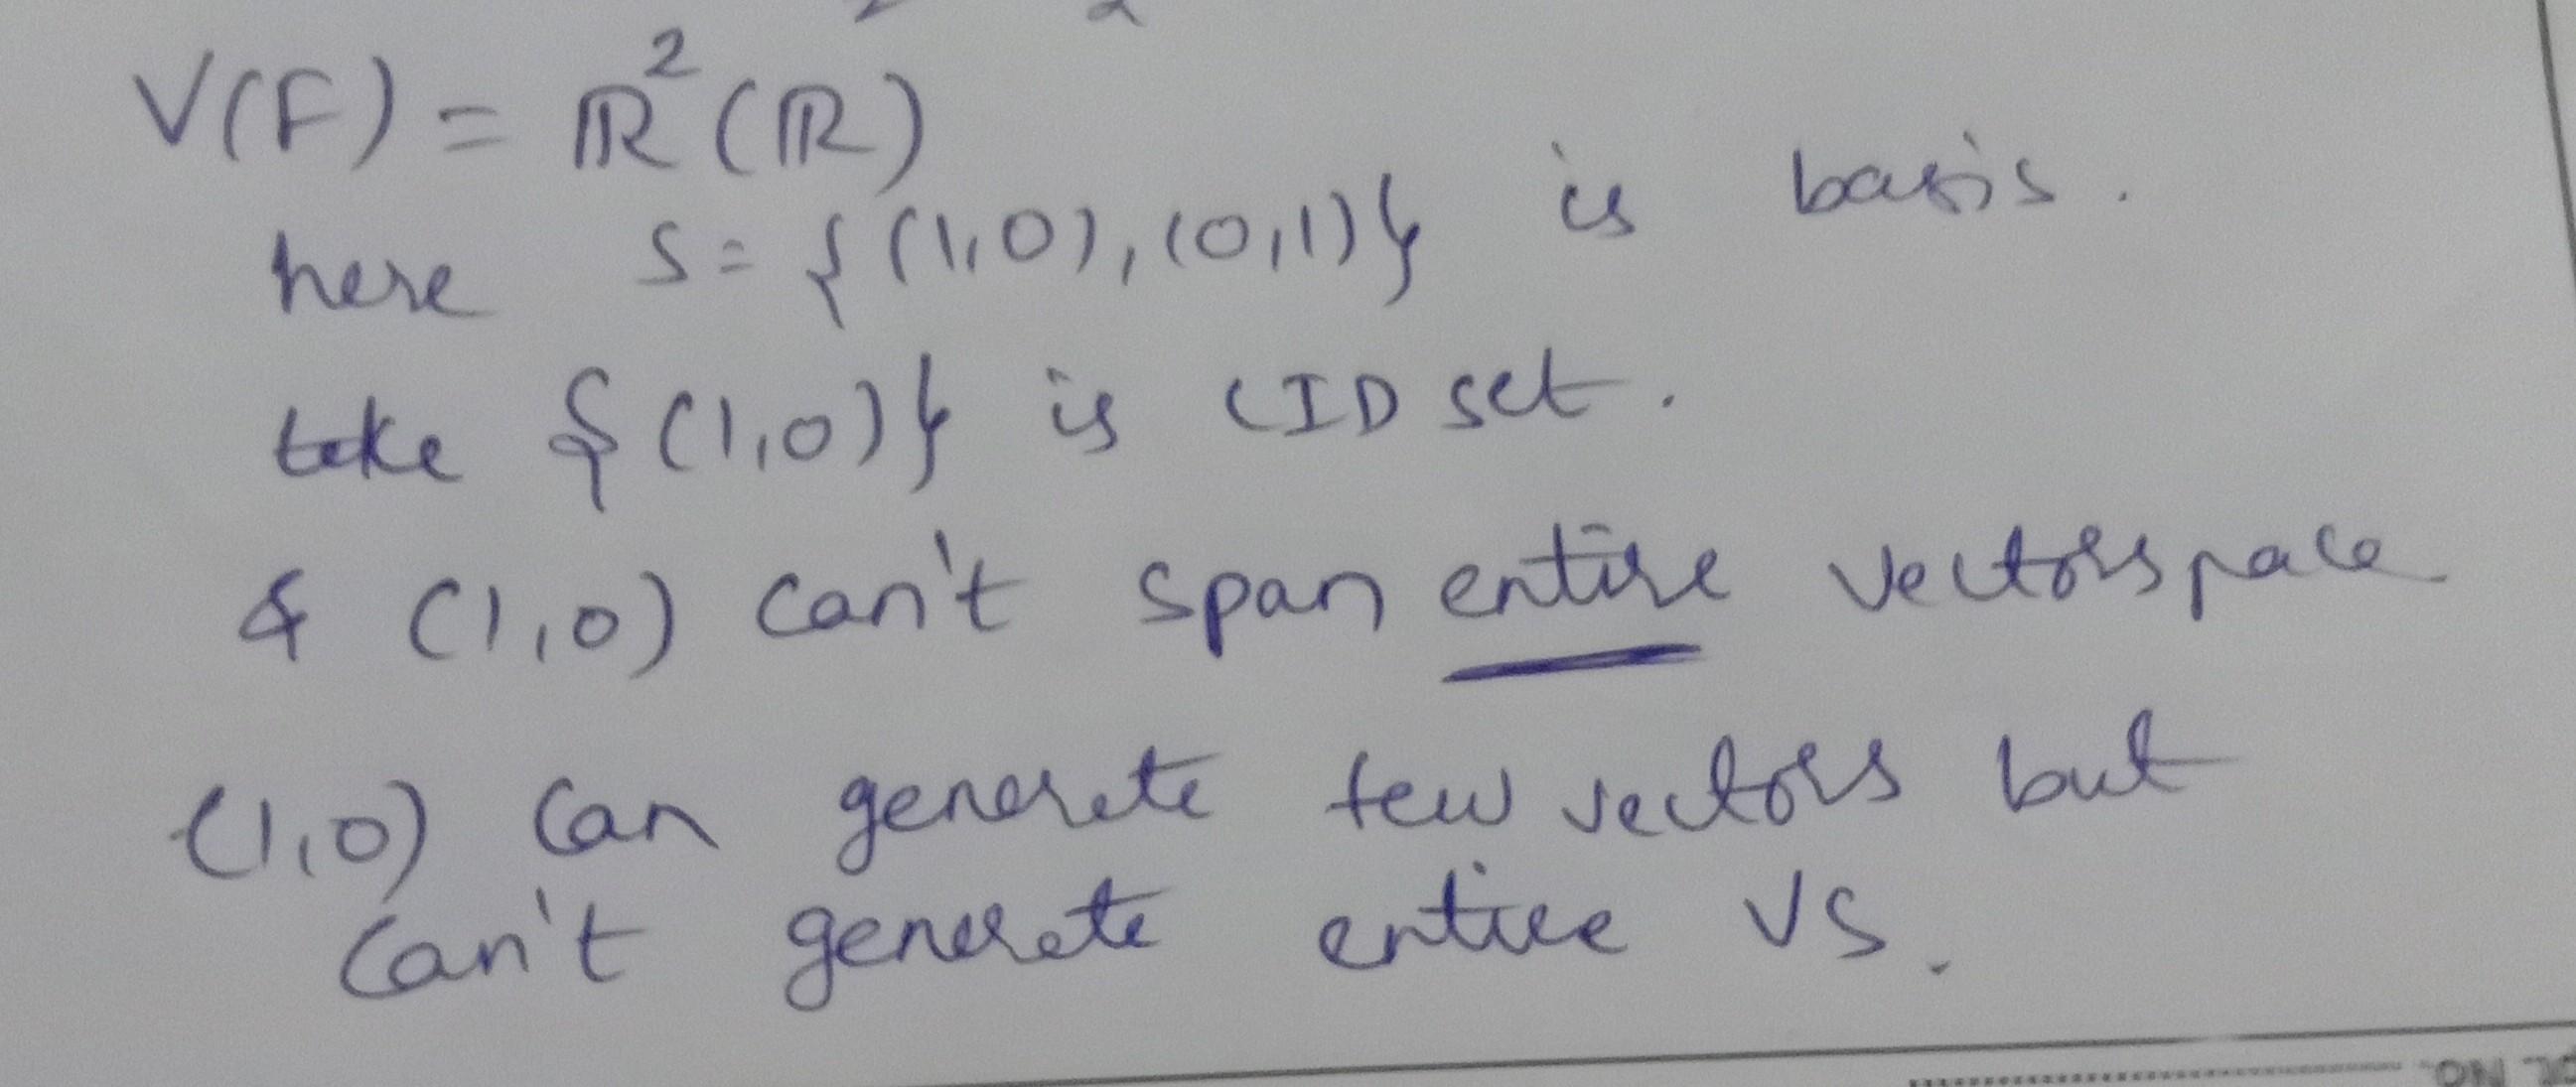 V(F) = ℝ²(ℝ)
here S = {(1,0), (0,1)} is basis.
take {(1,0)} is LID set.
& (1,0) can't span entire vectorspace
(1,0) can generate few vectors but
can't generate entire VS.